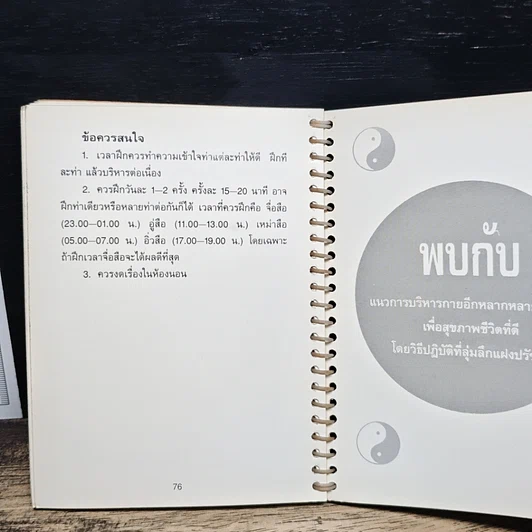 ข้อควรสนใจ
1. เวลาฝึกควรทำความเข้าใจท่าแต่ละท่าให้ดี ฝึกที
ละท่า แล้วบริหารต่อเนื่อง
2. ควรฝึกวันละ 1–2 ครั้ง ครั้งละ 15–20 นาที อาจ
ฝึกท่าเดียวหรือหลายท่าต่อกันก็ได้ เวลาที่ควรฝึกคือ จื่อสือ
(23.00–01.00 น.) อู่สือ (11.00–13.00 น.) เหม่าสือ
(05.00–07.00 น.) อิ่วสือ (17.00–19.00 น.) โดยเฉพาะ
ถ้าฝึกเวลาจื่อสือจะได้ผลดีที่สุด
3. ควรงดเรื่องในห้องนอน
76
พบกับ
แนวการบริหารกายอีกหลากหลาย
เพื่อสุขภาพชีวิตที่ดี
โดยวิธีปฏิบัติที่ลุ่มลึกแฝงปรัช